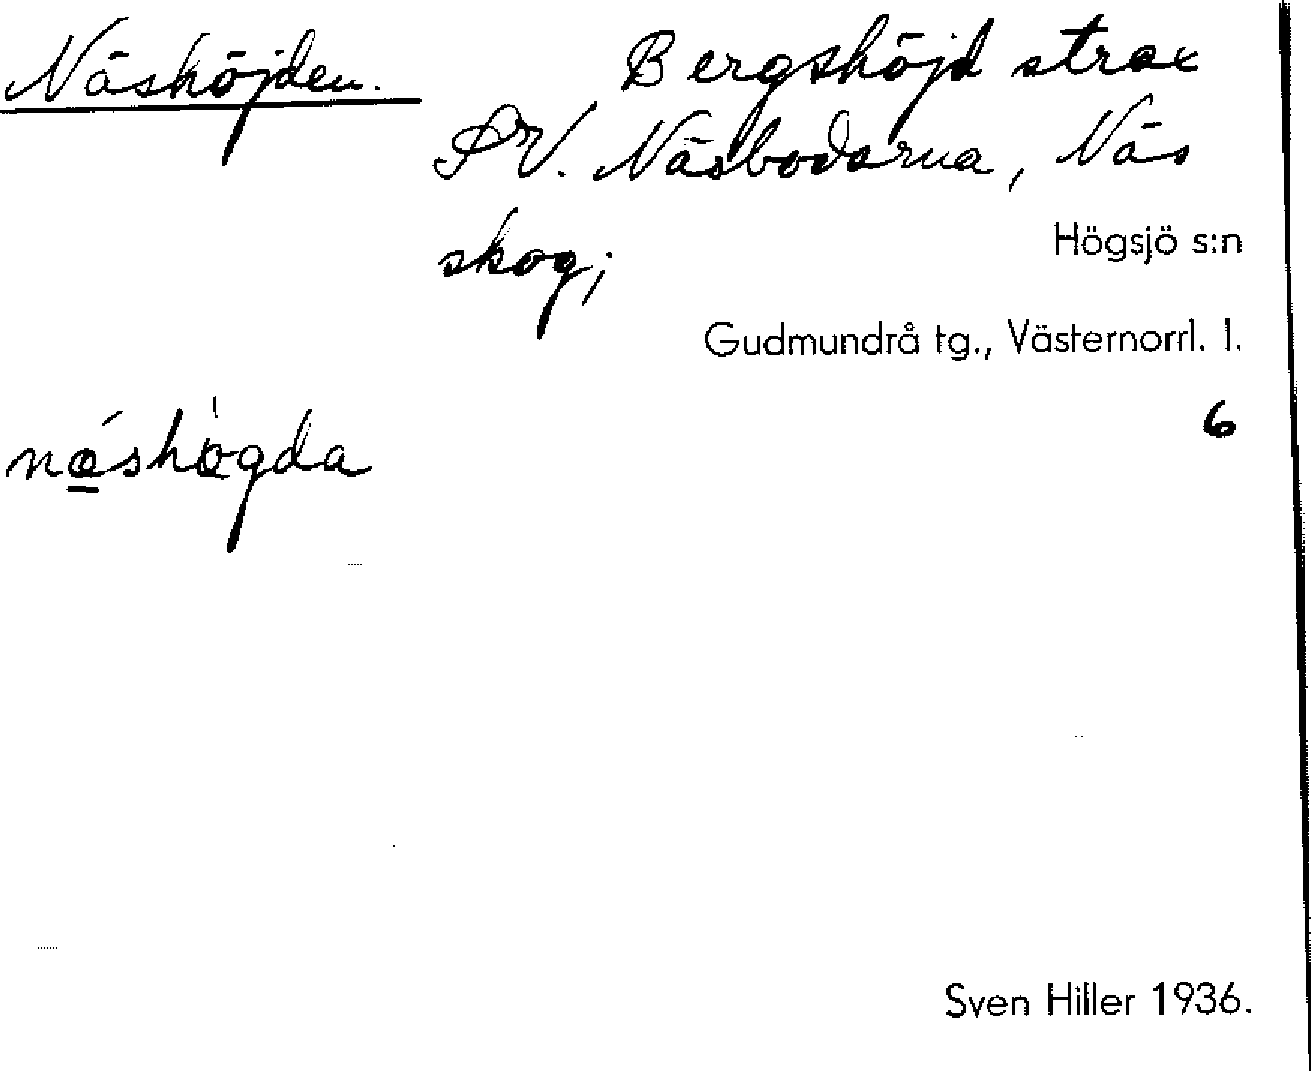 Näshöjden. Bergshöjd strax
SV. Näsbodarna, Näs
skog;
Högsjö s:n
Gudmundrå tg., Västernorrl. l.
6
næshøgda
Sven Hiller 1936.